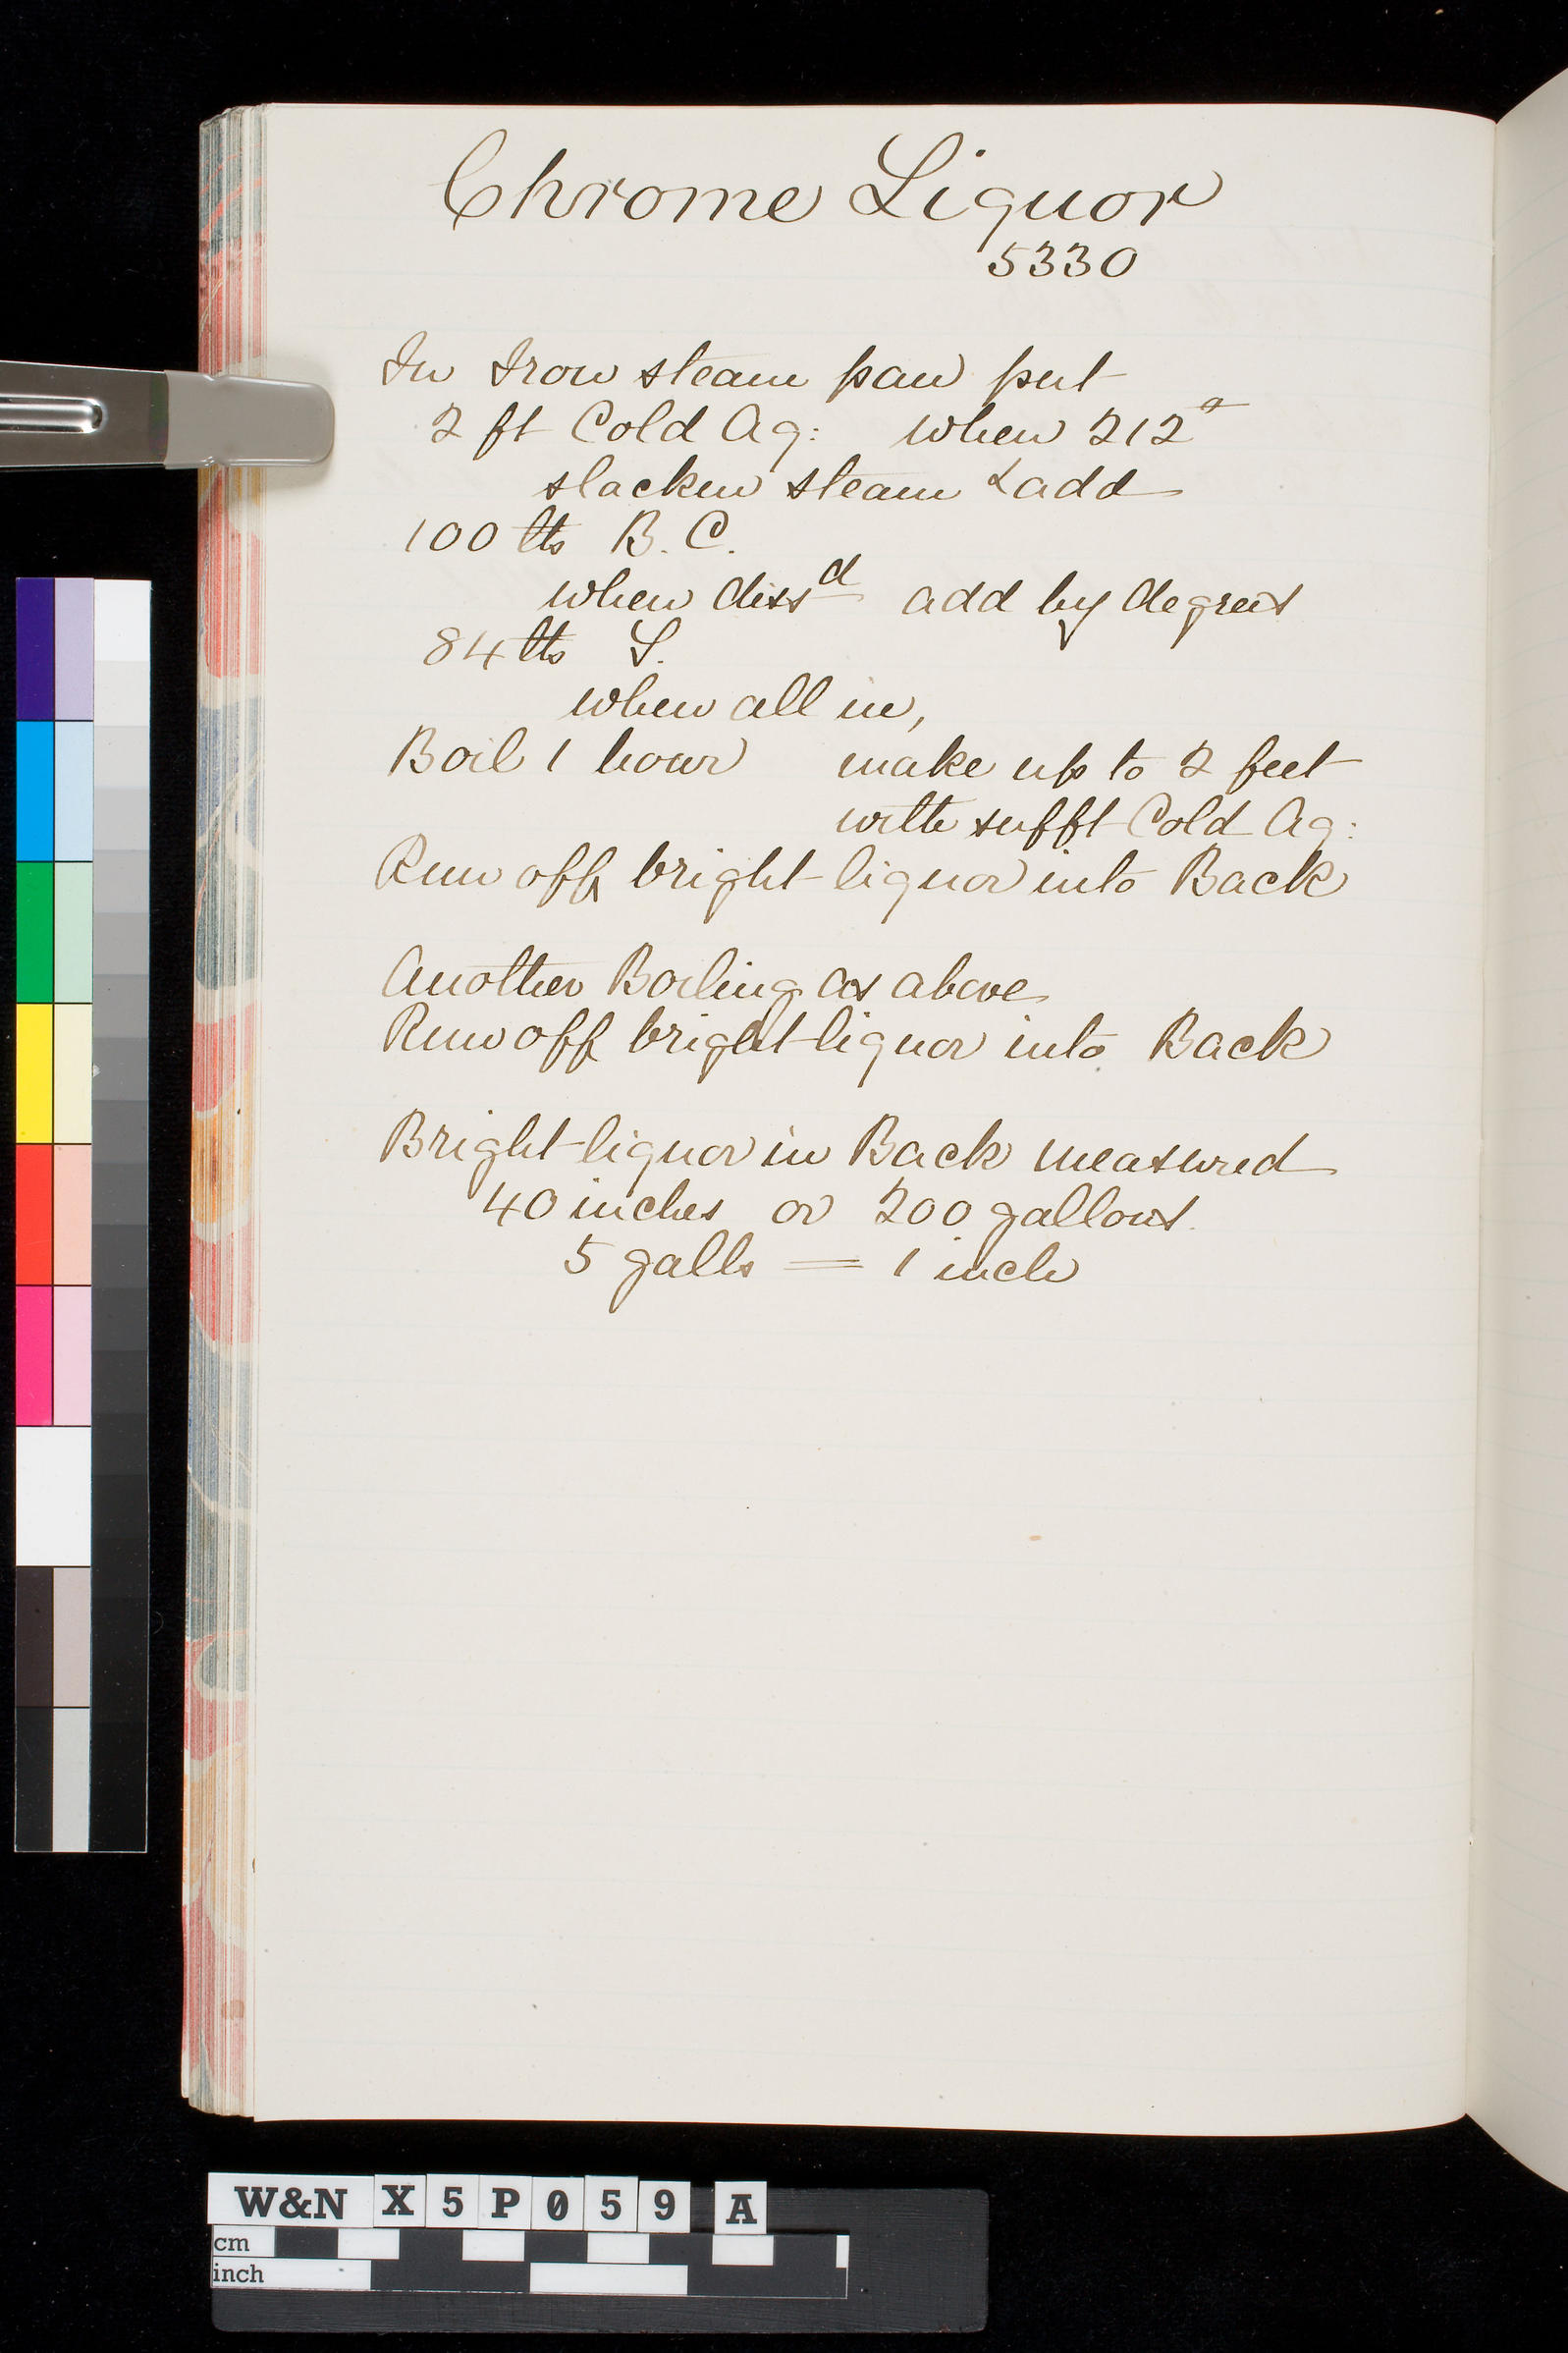 Chrome Liquor
5330
In Iron steam pan put
2 ft Cold Aq: when 212°
slacken steam & add
100 lbs B. C.
when dissd add by degrees
84 lbs S.
when all in,
Boil 1 hour make up to 2 feet
with sufft Cold Aq:
Run off bright liquor into Back
Another Boiling as above
Run off bright liquor into Back
Bright liquor in Back measured
40 inches or 200 gallons.
5 galls = 1 inch
W&N X5P059 A
cm
inch